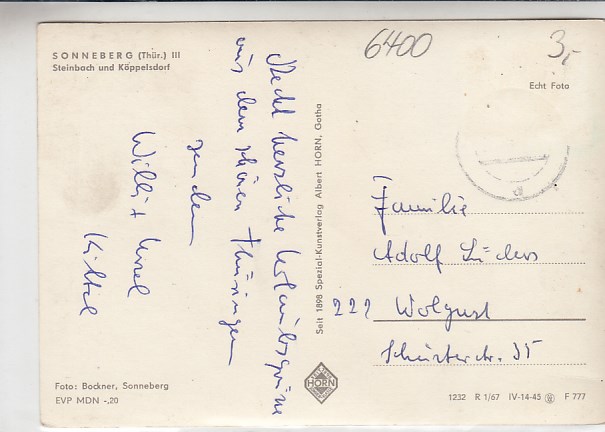 SONNEBERG (Thür.) III
Steinbach und Köppelsdorf
6400
3,-
Echt Foto
Recht herzliche Urlaubsgrüße
aus dem schönen Thüringen
senden
Willi + Ursel
Kittel
Seit 1898 Spezial-Kunstverlag Albert HORN, Gotha
Familie
Adolf Lüders
222 Wolgast
Schusterstr. 35
HORN
Foto: Bockner, Sonneberg
EVP MDN -.20
1232 R 1/67 IV-14-45 F 777